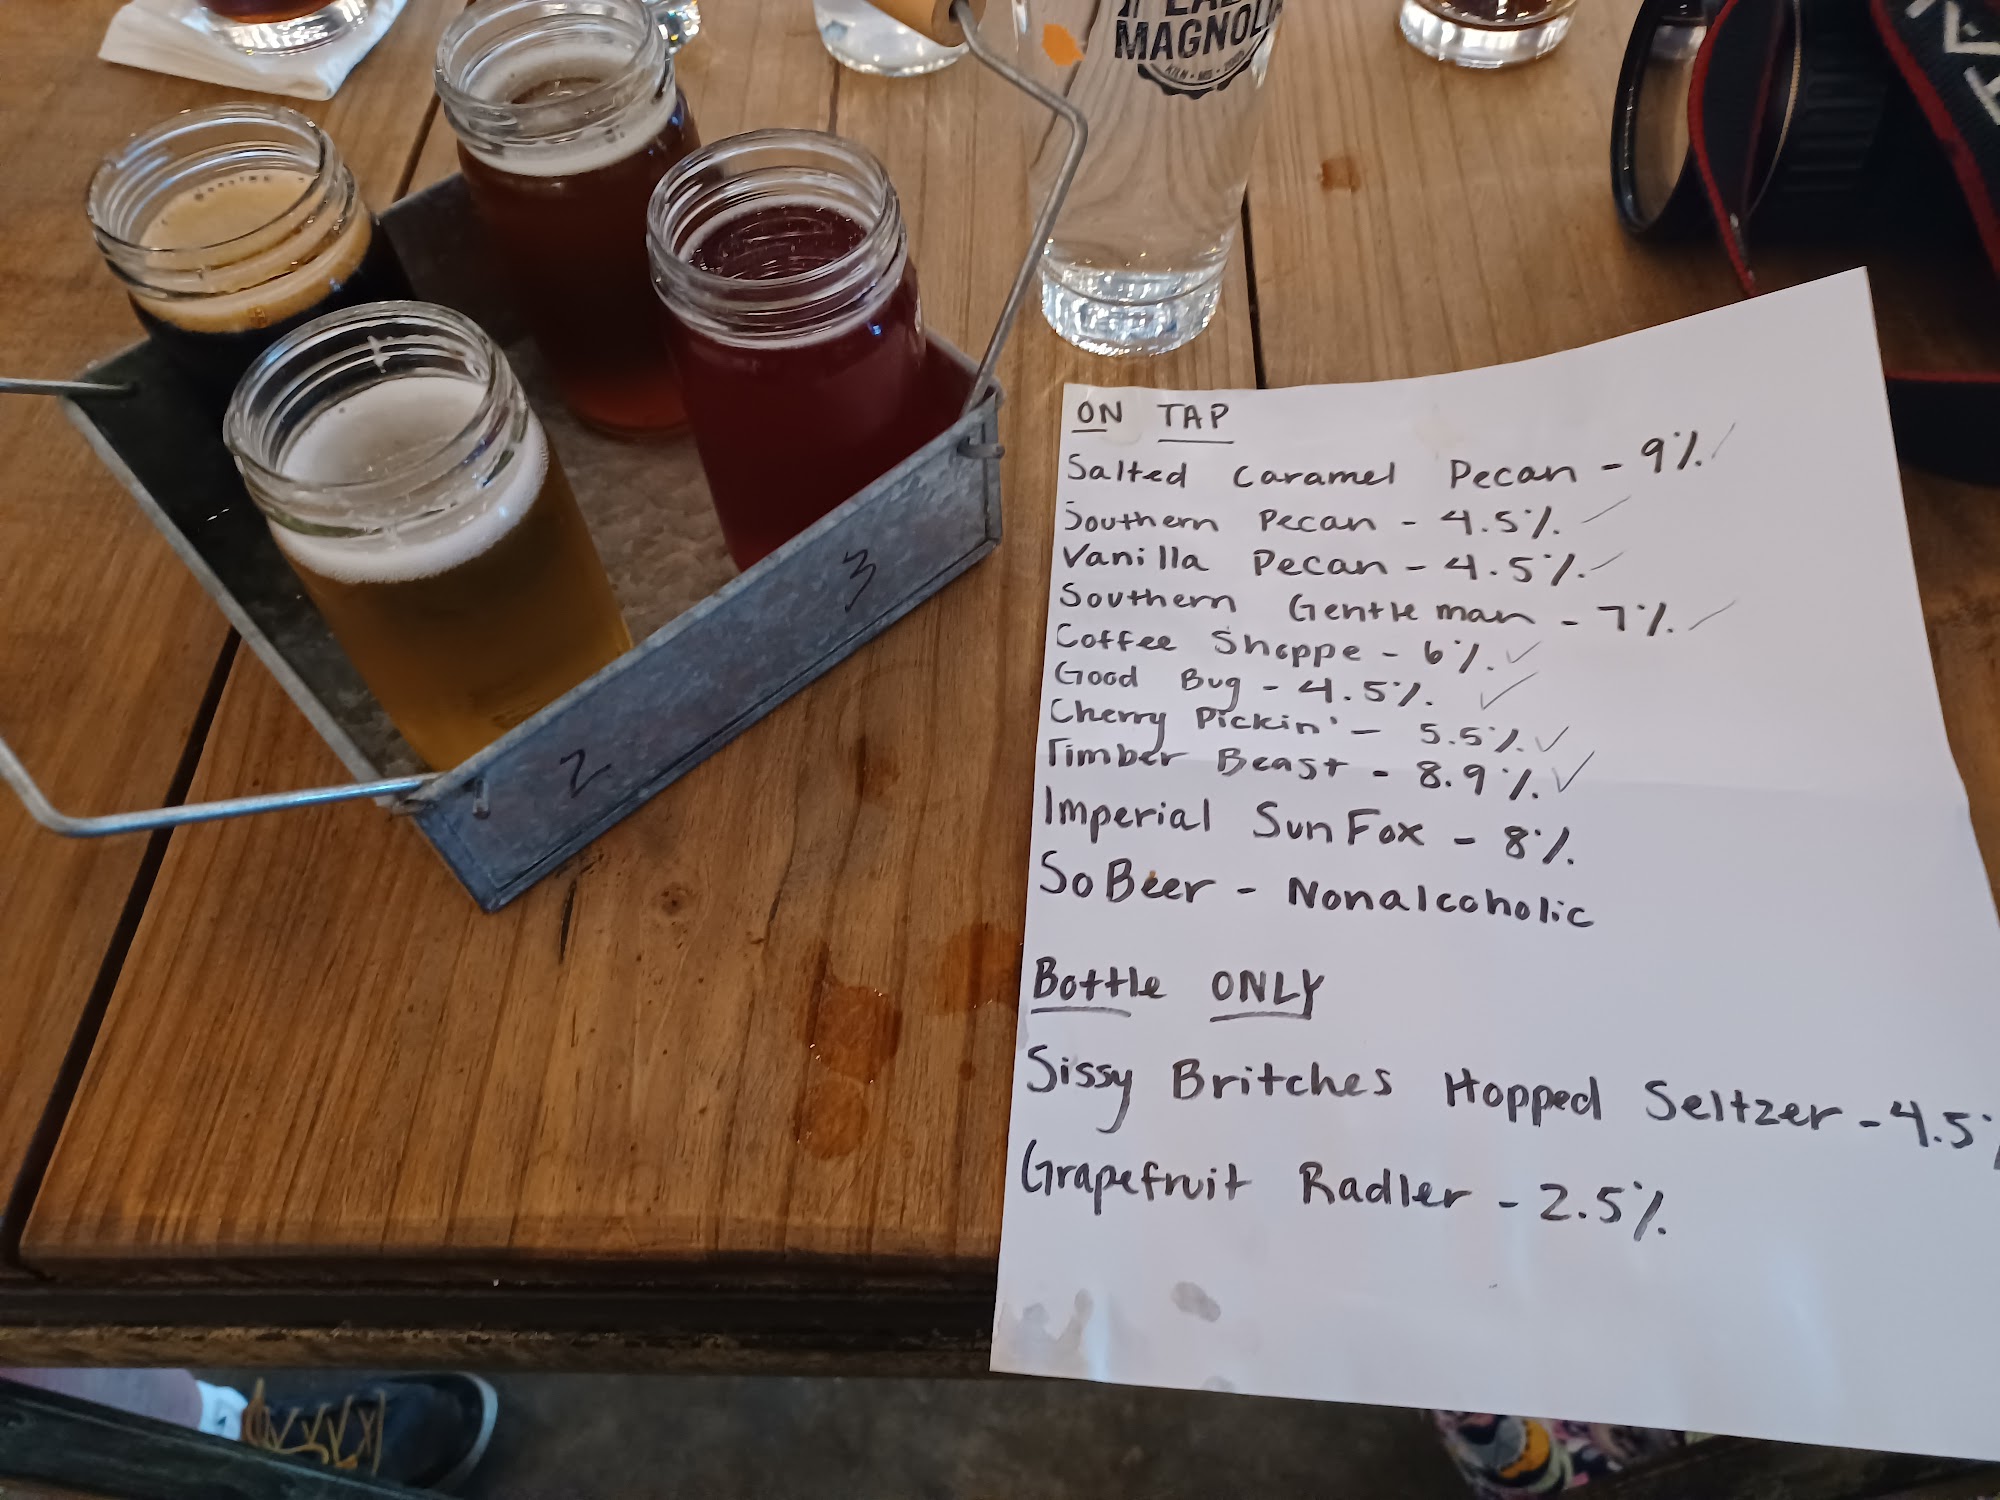 MAGNOLIA
KILN • MS
2
3
ON TAP
Salted Caramel Pecan - 9%
Southern Pecan - 4.5%
Vanilla Pecan - 4.5%
Southern Gentleman - 7%
Coffee Shoppe - 6%
Good Bug - 4.5%
Cherry Pickin' - 5.5%
Timber Beast - 8.9%
Imperial Sun Fox - 8%
So Beer - Nonalcoholic
Bottle ONLY
Sissy Britches Hopped Seltzer - 4.5%
Grapefruit Radler - 2.5%